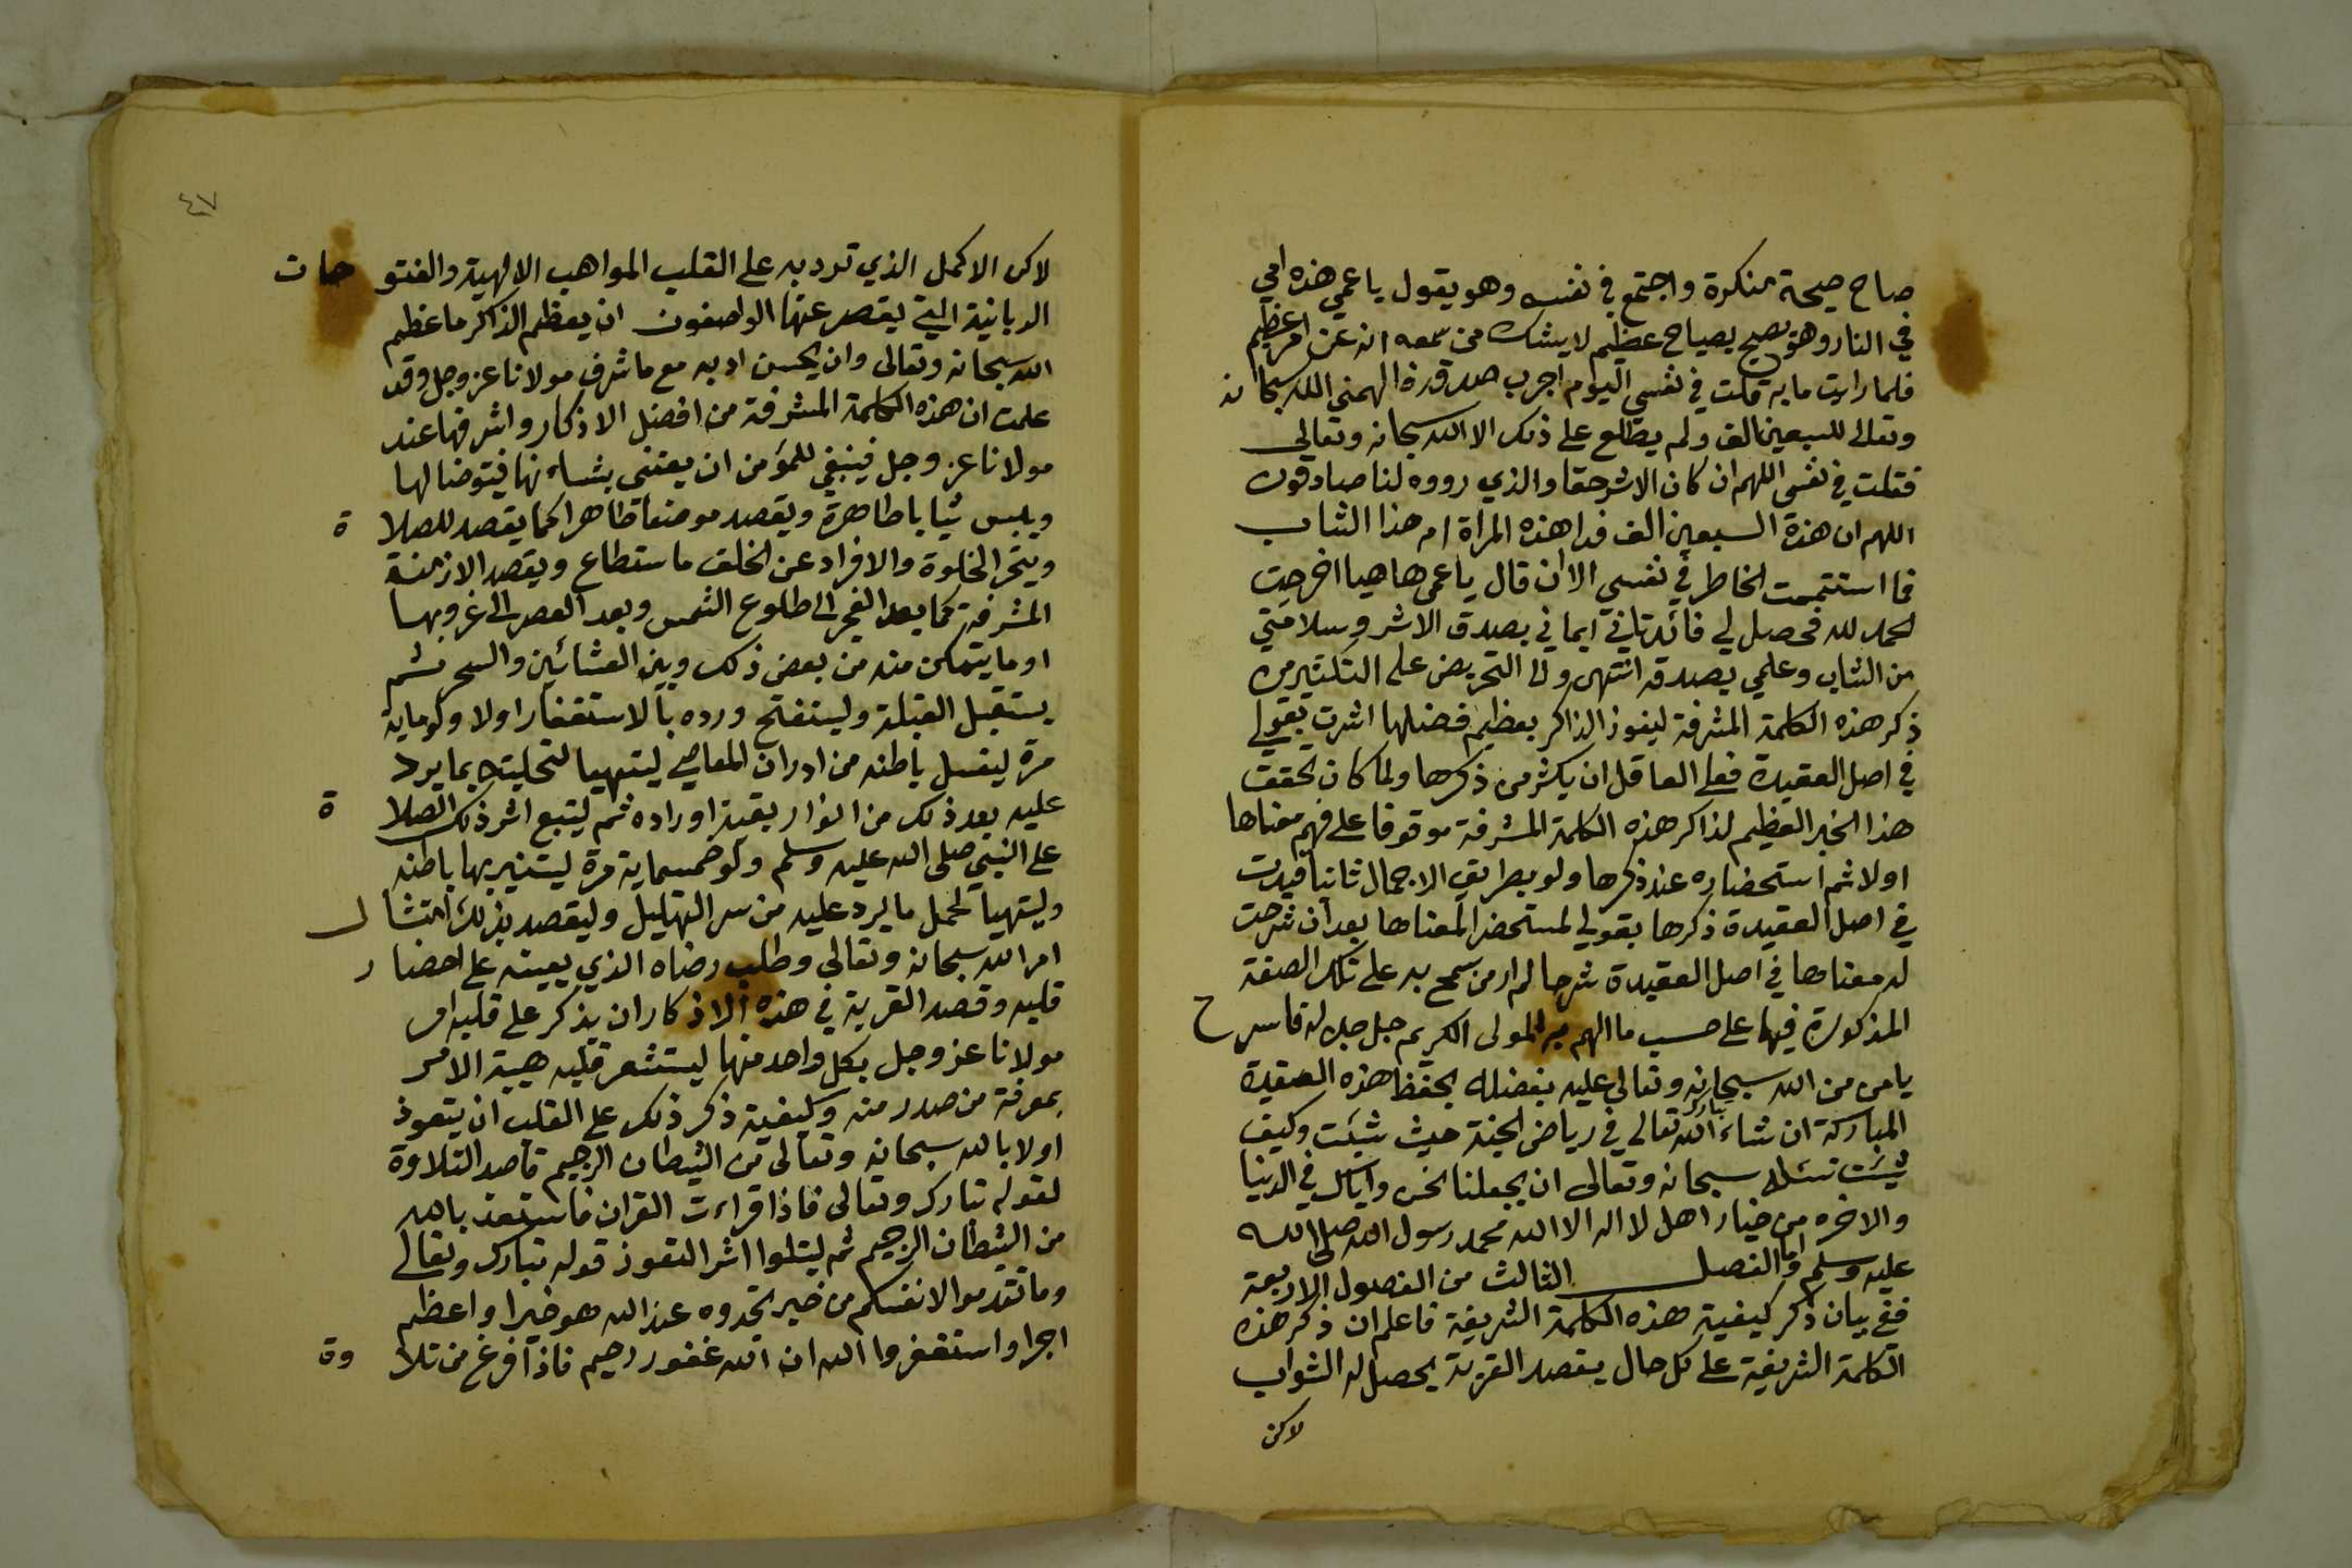 صاح صيحة منكرة واجتمع في نفسه وهو يقول يا عمي هذه امي
في النار وهو يصيح بصياح عظيم لا يشك من سمعه انه عن امر عظيم
فلما رايت ما به قلت في نفسي اليوم اجرب صدقه فالهمني الله سبحانه
وتعالى للسبعين الف ولم يطلع على ذلك الا الله سبحانه وتعالى
فقلت في نفسي اللهم ان كان الاثر حقا والذي رووه لنا صادقون
اللهم ان هذة السبعين الف فدا هذه المراة ام هذا الشاب
فما استتممت الخاطر في نفسي الا ان قال يا عمي ها هيا اخرجت
الحمد لله فحصل لي فائدتان ايماني بصدق الاثر وسلامتي
من الشاب وعلمي بصدقه انتهى والى التحريض على التكثير من
ذكر هذه الكلمة المشرفة ليفوز الذاكر بعظيم فضلها اشرت بقولي
في اصل العقيدة فعلى العاقل ان يكثر من ذكرها ولما كان تحقق
هذا الخير العظيم لذاكر هذه الكلمة المشرفة موقوفا على فهم معناها
اولا ثم استحضاره عند ذكرها ولو بطريق الاجمال ثانيا قيدت
في اصل العقيدة ذكرها بقولي لمستحضر المعناها بعد ان شرحت
له معناها في اصل العقيدة شرحا لم ار من سمح به على تلك الصفة
المذكورة فيها على حسب ما الهم به المولى الكريم جل جلاله فاسرح
يا من من الله سبحانه وتعالى عليه بفضله بحفظ هذه العقيدة
المباركة ان شاء الله تبارك تعالى في رياض الجنة حيث شئت وكيف
شئت نسئله سبحانه وتعالى ان يجعلنا نحن واياك في الدنيا
والاخره من خيار اهل لا اله الا الله محمد رسول الله صلى الله
عليه وسلم واما الفصل الثالث من الفصول الاربعة
ففي بيان ذكر كيفية هذه الكلمة الشريفة فاعلم ان ذكر هذه
الكلمة الشريفة على كل حال بقصد القربة يحصل له الثواب
لاكن
٤٧
لاكن الاكمل الذي ترد به على القلب المواهب الالهية والفتوحات
الربانية التي يقصر عنها الواصفون ان يعظم الذاكر ما عظم
الله سبحانه وتعالى وان يحسن ادبه مع ما شرف مولانا عز وجل وقد
علمت ان هذه الكلمة المشرفة من افضل الاذكار واشرفها عند
مولانا عز وجل فينبغي للمؤمن ان يعتني بشاءنها فيتوضا لها
ويلبس ثيابا طاهرة ويقصد موضعا طاهرا كما يقصد للصلاة
ويتحر الخلوة والافراد عن الخلق ما ستطاع ويقصد الازمنة
المشرفة كما بعد الفجر الى طلوع الشمس وبعد العصر الى غروبها
او ما يتمكن منه من بعض ذلك وبين العشائين والسحر ثم
يستقبل القبلة وليستفتح ورده بالاستغفار اولا ولو ماية
مرة ليغسل باطنه من ادران المعاصي ليتهيا لتحليته بما يرد
عليه بعد ذلك من انوار بقية اوراده ثم ليتبع اثر ذلك الصلاة
على النبي صلى الله عليه وسلم ولو خمسماية مرة ليستنير بها باطنه
وليتهيا لحمل ما يرد عليه من سر التهليل وليقصد بذلك امتثال
امر الله سبحانه وتعالى وطلب رضاه الذي يعينه على احضار
قلبه وقصد القربة في هذه الاذكار ان يذكر على قلبه امر
مولانا عز وجل بكل واحد منها ليستشعر قلبه هيبة الامر
بمعرفة من صدر منه وكيفية ذكر ذلك على القلب ان يتعوذ
اولا بالله سبحانه وتعالى من الشيطان الرجيم قاصد التلاوة
لقوله تبارك وتعالى فاذا قراءت القران فاستعذ بالله
من الشيطان الرجيم ثم ليتلوا اثر التعوذ قوله تبارك وتعالى
وما تقدموا لانفسكم من خير تجدوه عند الله هو خيرا واعظم
اجرا واستغفروا الله ان الله غفور رحيم فاذا فرغ من تلاوة